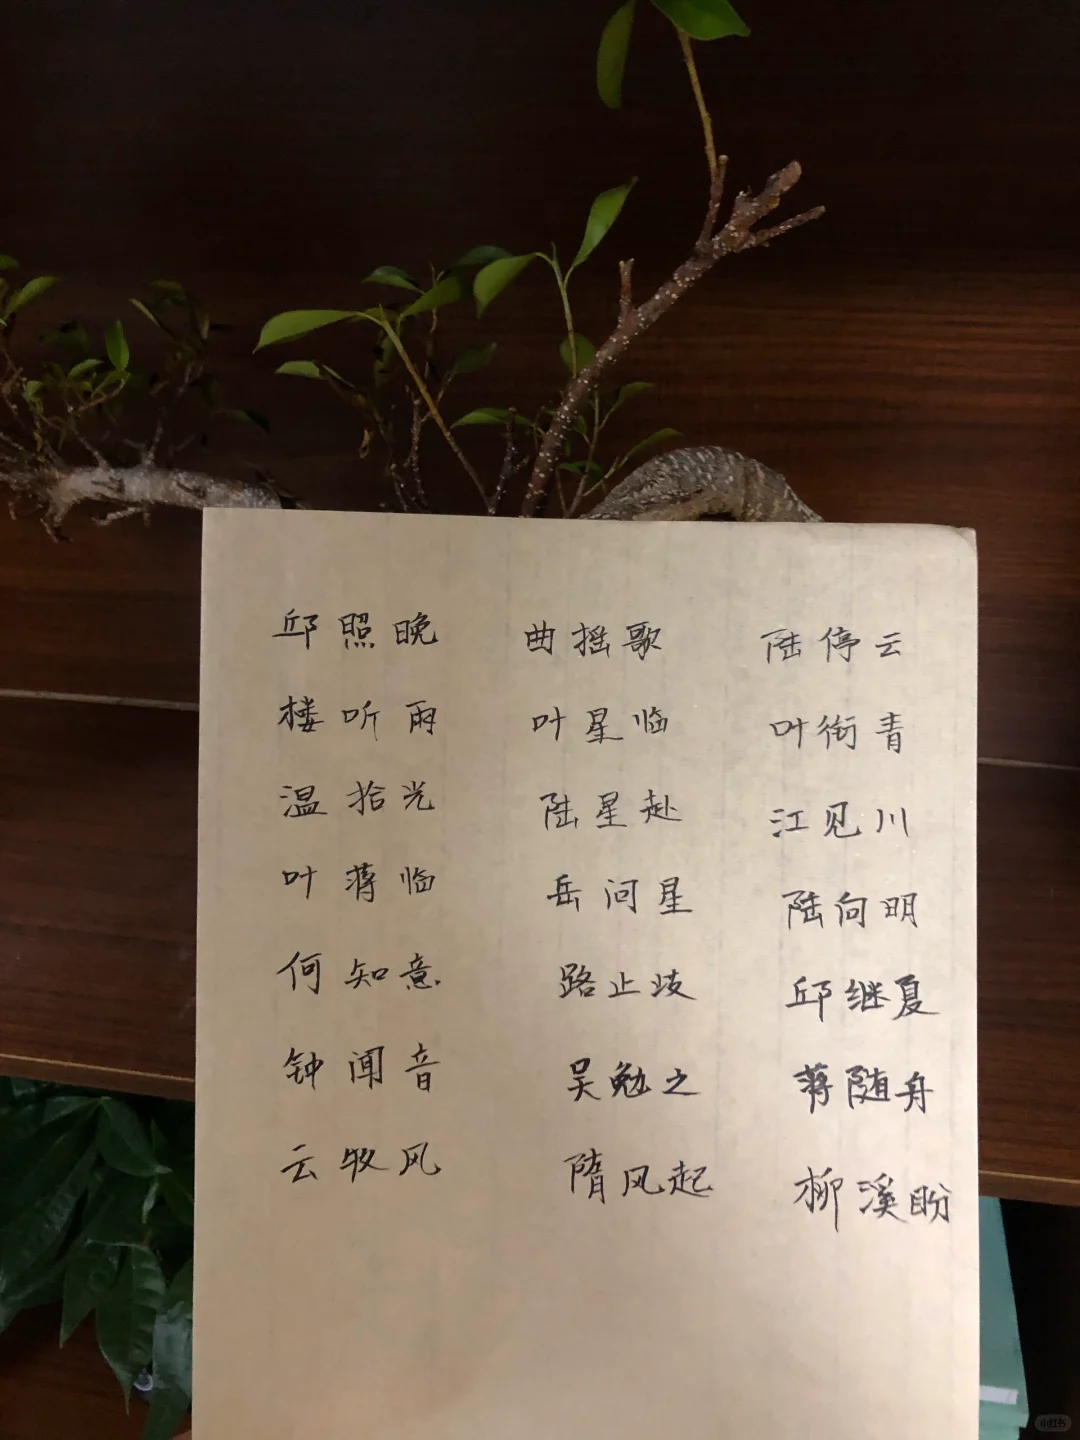 邱照晚 曲摇歌 陆停云
楼听雨 叶星临 叶衔青
温拾光 陆星赴 江见川
叶蒋临 岳问星 陆向明
何知意 路止歧 邱继夏
钟闻音 吴勉之 蒋随舟
云牧风 隋风起 柳溪盼
小红书